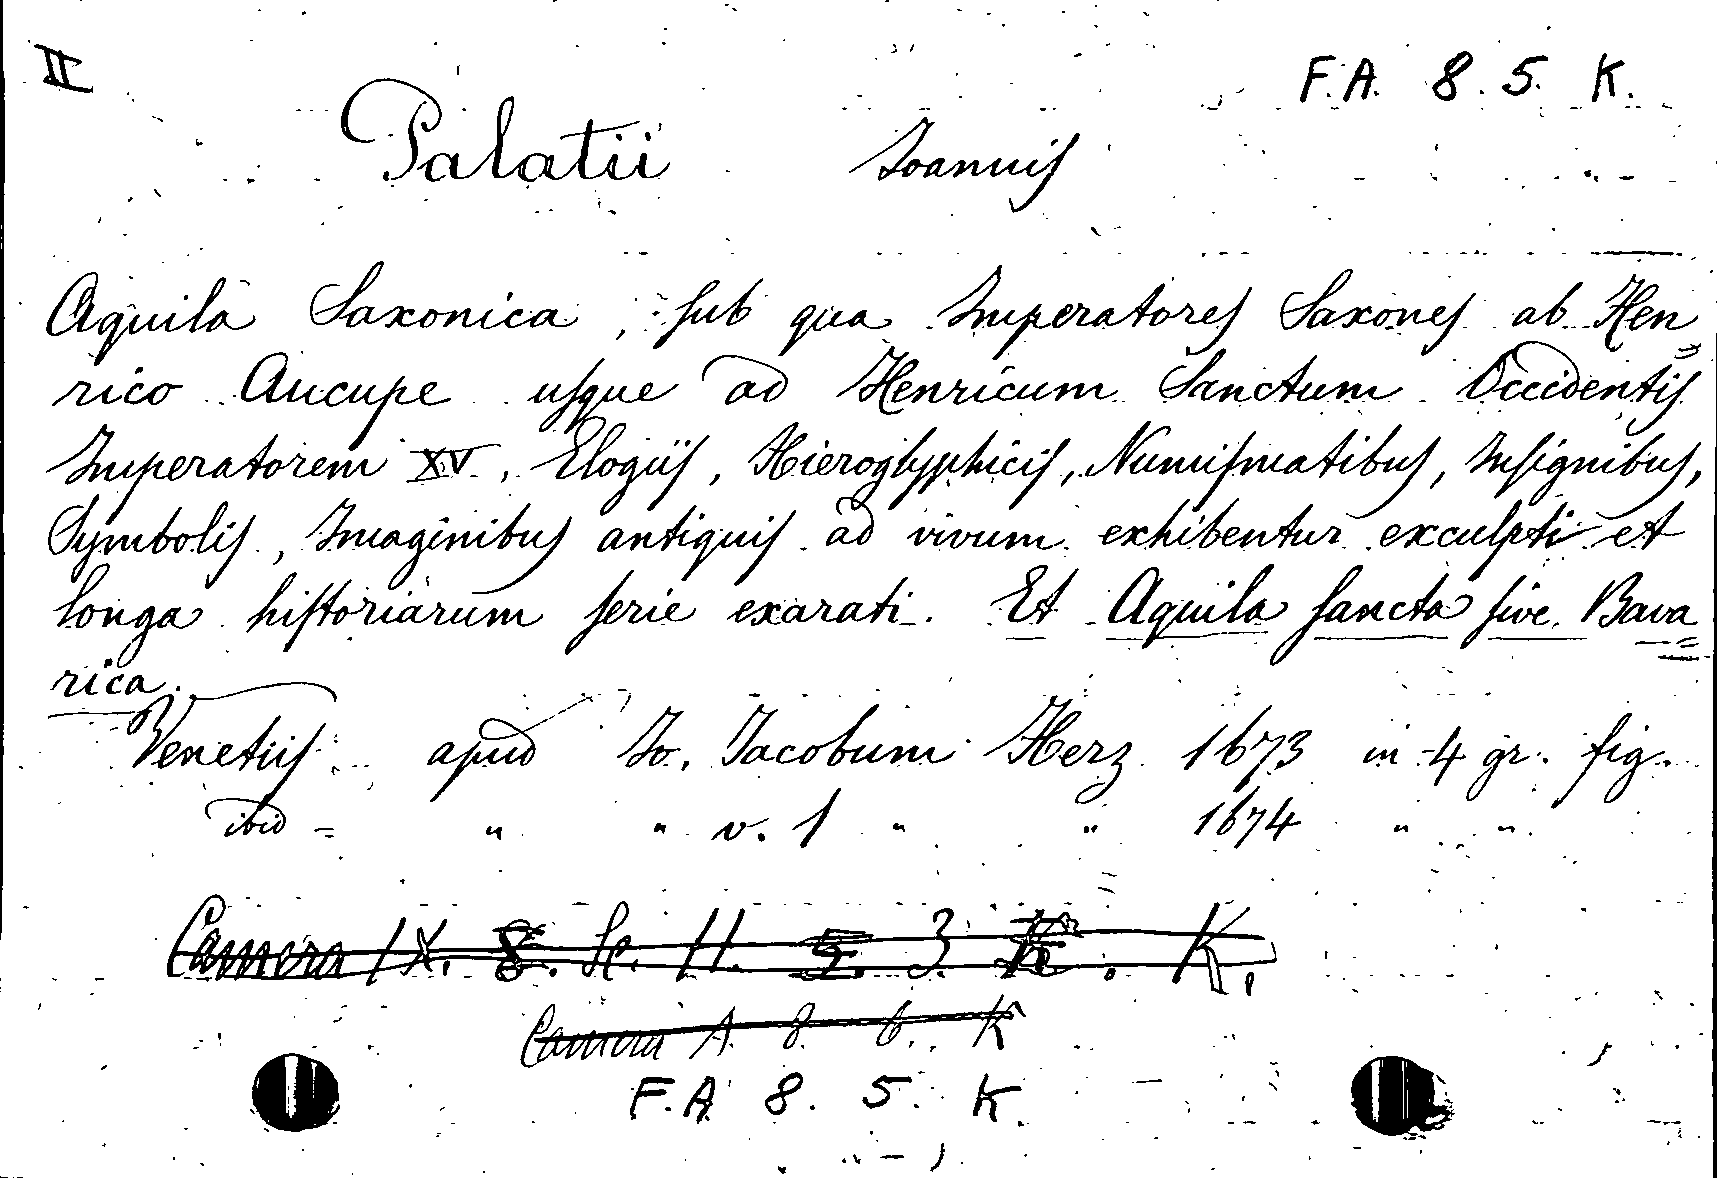 II
F.A. 8. 5. K.
Palatii Joannis
Aquila Saxonica, sub qua Imperatores Saxones ab Hen
rico Aucupe usque ad Henricum Sanctum Occidentis
Imperatorem XV, Elogiis, Hieroglyphicis, Numismatibus, Insignibus,
Symbolis, Imaginibus antiquis ad vivum exhibentur exculpti et
longa historiarum serie exarati. Et Aquila sancta sive Bava
rica.
Venetiis apud Jo. Jacobum Herz 1673 in 4 gr. fig.
ibid = " " v. 1 " " 1674 " "
Camera IX. 8. Sc. 11. 5. 3. K. K.
Camera A. 8. 6. K
F.A. 8. 5. K